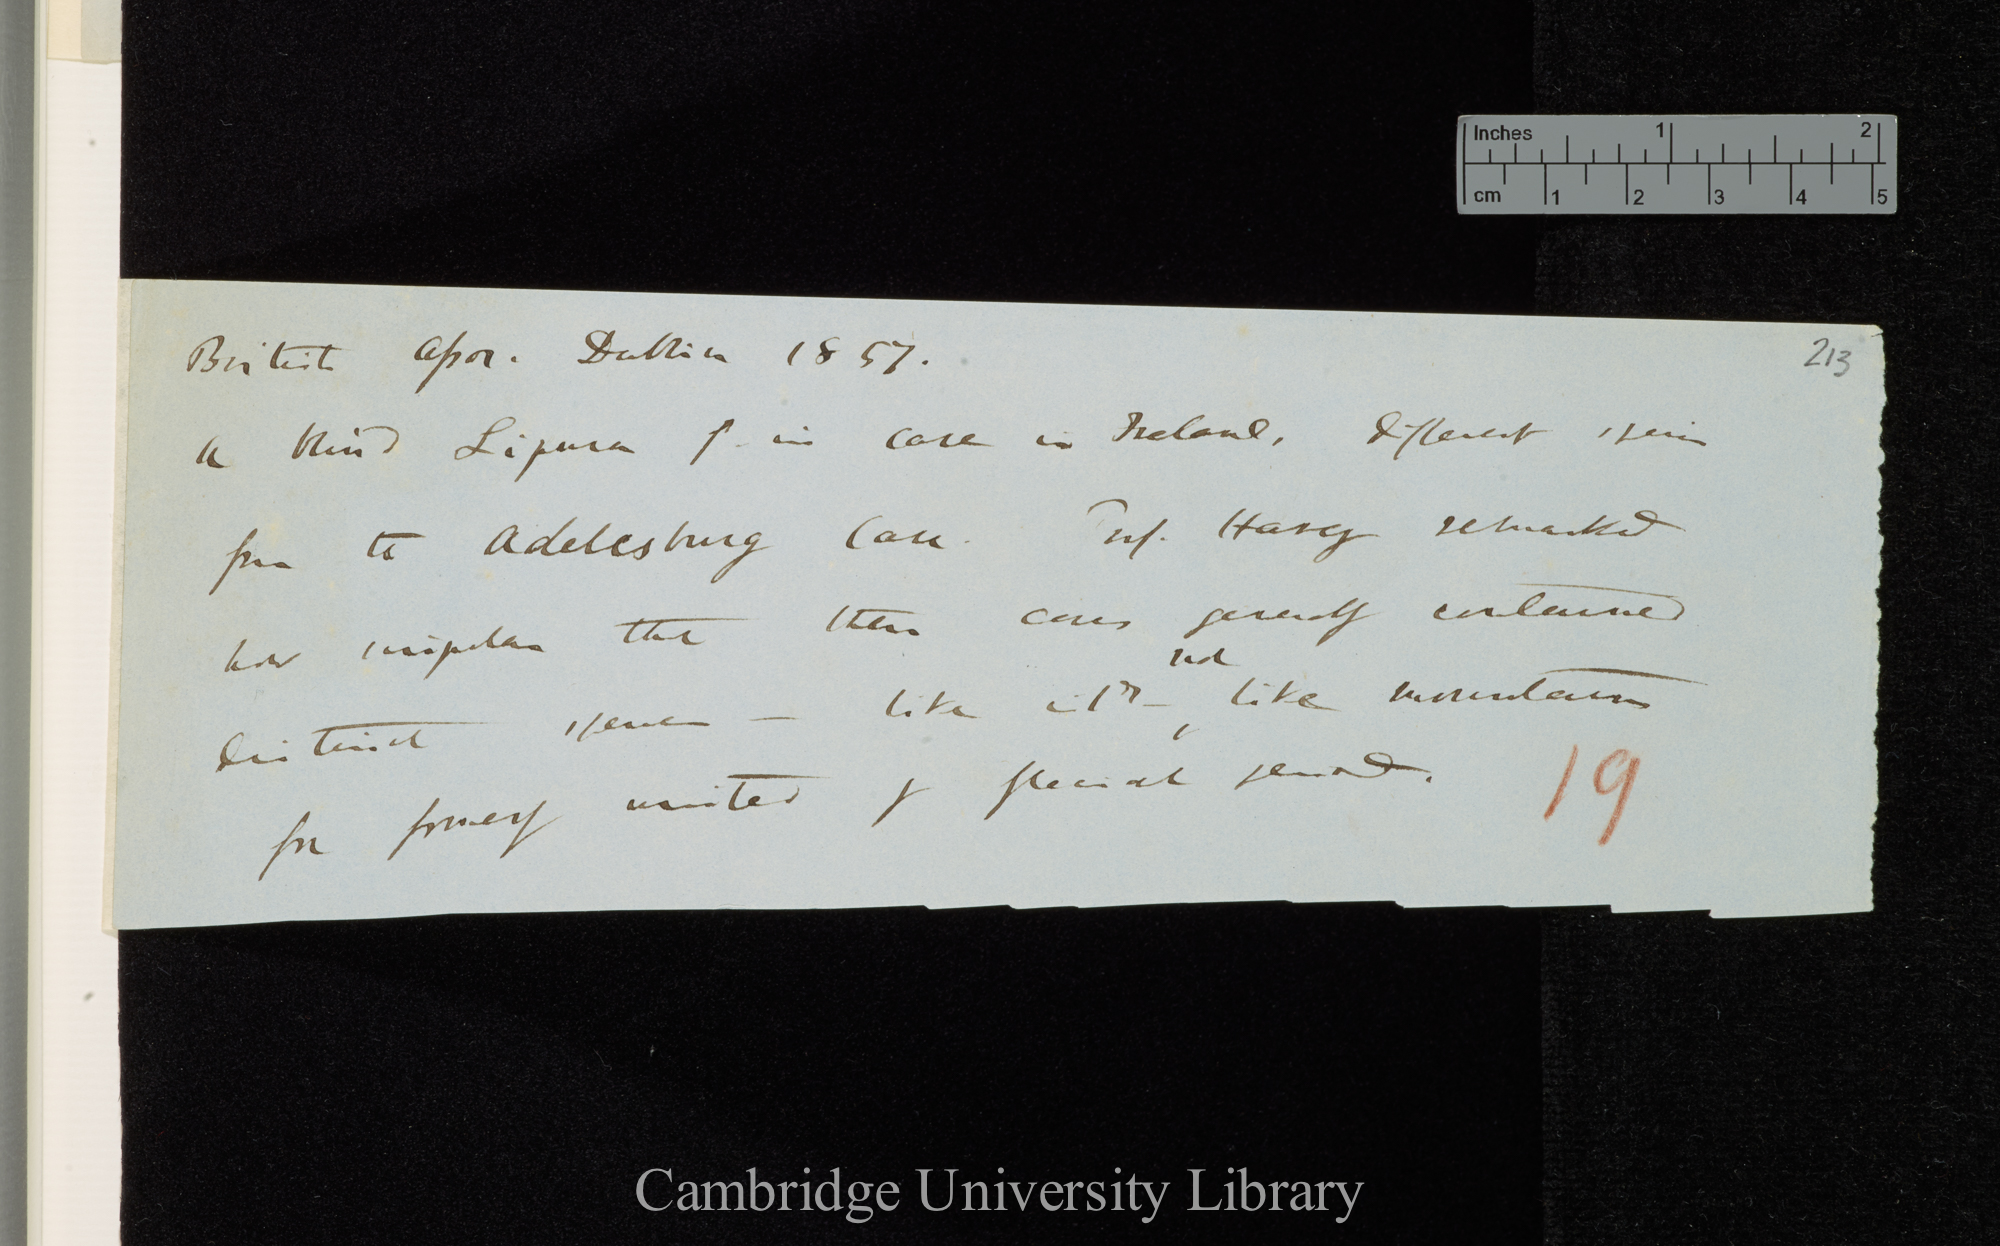 Inches 1 2
cm 1 2 3 4 5
213
British Assoc. Dublin 1857.
A blind Lipura f. in cave in Ireland, different species
from the Adelesburg Cave. Prof. Harvey remarked
how singular that these caves generally contained
distinct species — like isl^ds — not like mountains
for formerly united by glacial period.
19
Cambridge University Library